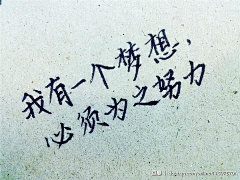 我有一个梦想，
必须为之努力